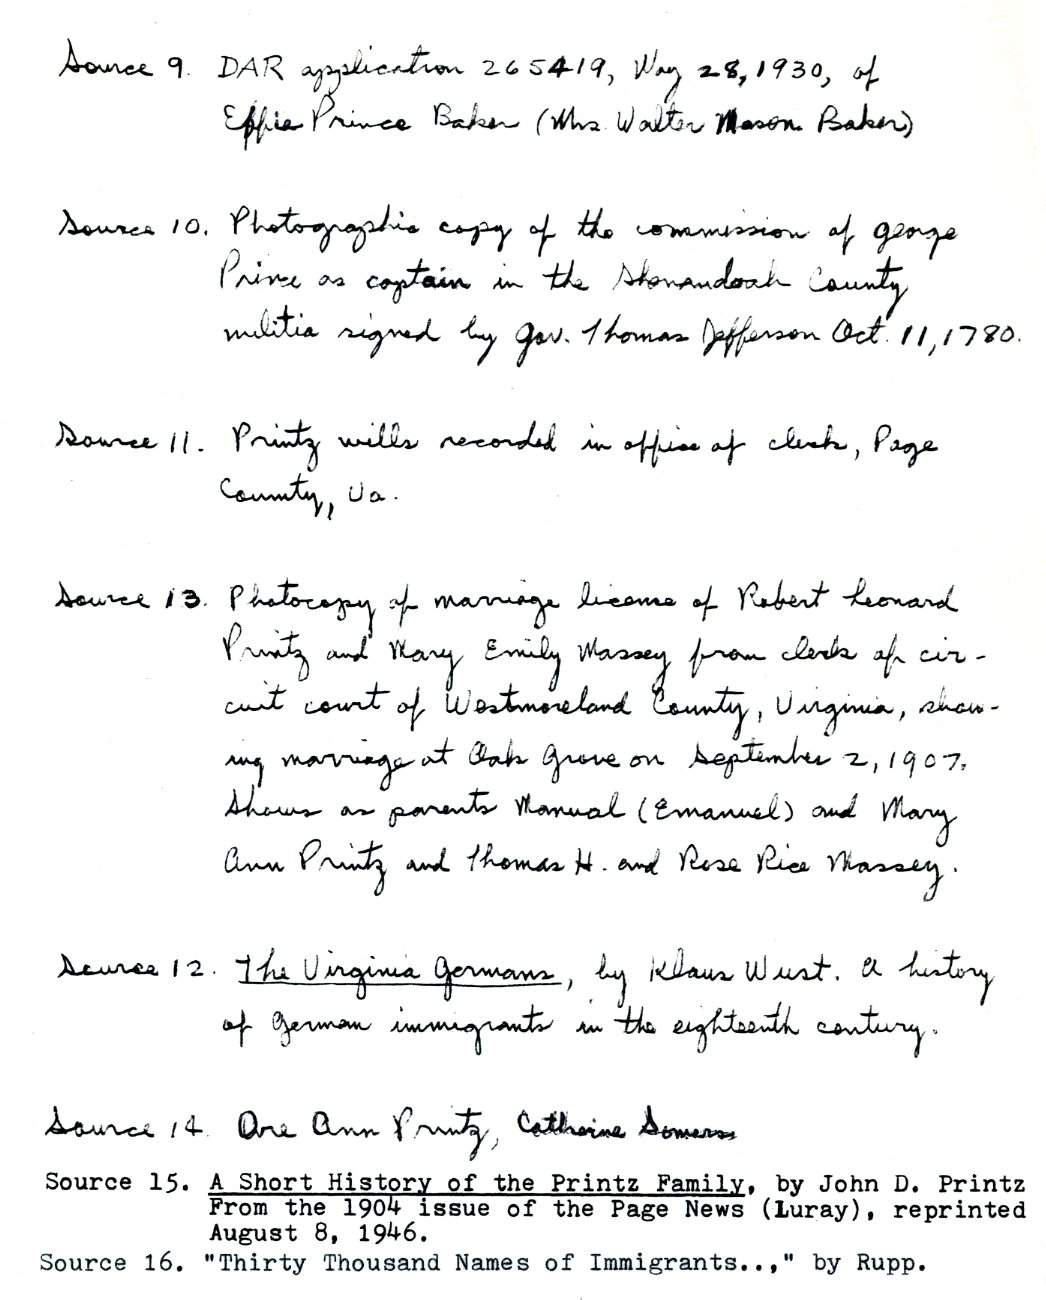 Source 9. DAR application 265419, May 28, 1930, of
Effie Prince Baker (Mrs. Walter Mason Baker)
Source 10. Photographic copy of the commission of George
Prince as captain in the Shenandoah County
militia signed by Gov. Thomas Jefferson Oct. 11, 1780.
Source 11. Printz wills recorded in office of clerk, Page
County, Va.
Source 13. Photocopy of marriage license of Robert Leonard
Printz and Mary Emily Massey from clerk of cir-
cuit court of Westmoreland County, Virginia, show-
ing marriage at Oak Grove on September 2, 1907.
Shows as parents Manual (Emanuel) and Mary
Ann Printz and Thomas H. and Rose Rice Massey.
Source 12. The Virginia Germans, by Klaus Wust. A history
of German immigrants in the eighteenth century.
Source 14. Ore Ann Printz, Catherine Somers
Source 15. A Short History of the Printz Family, by John D. Printz
From the 1904 issue of the Page News (Luray), reprinted
August 8, 1946.
Source 16. "Thirty Thousand Names of Immigrants..," by Rupp.